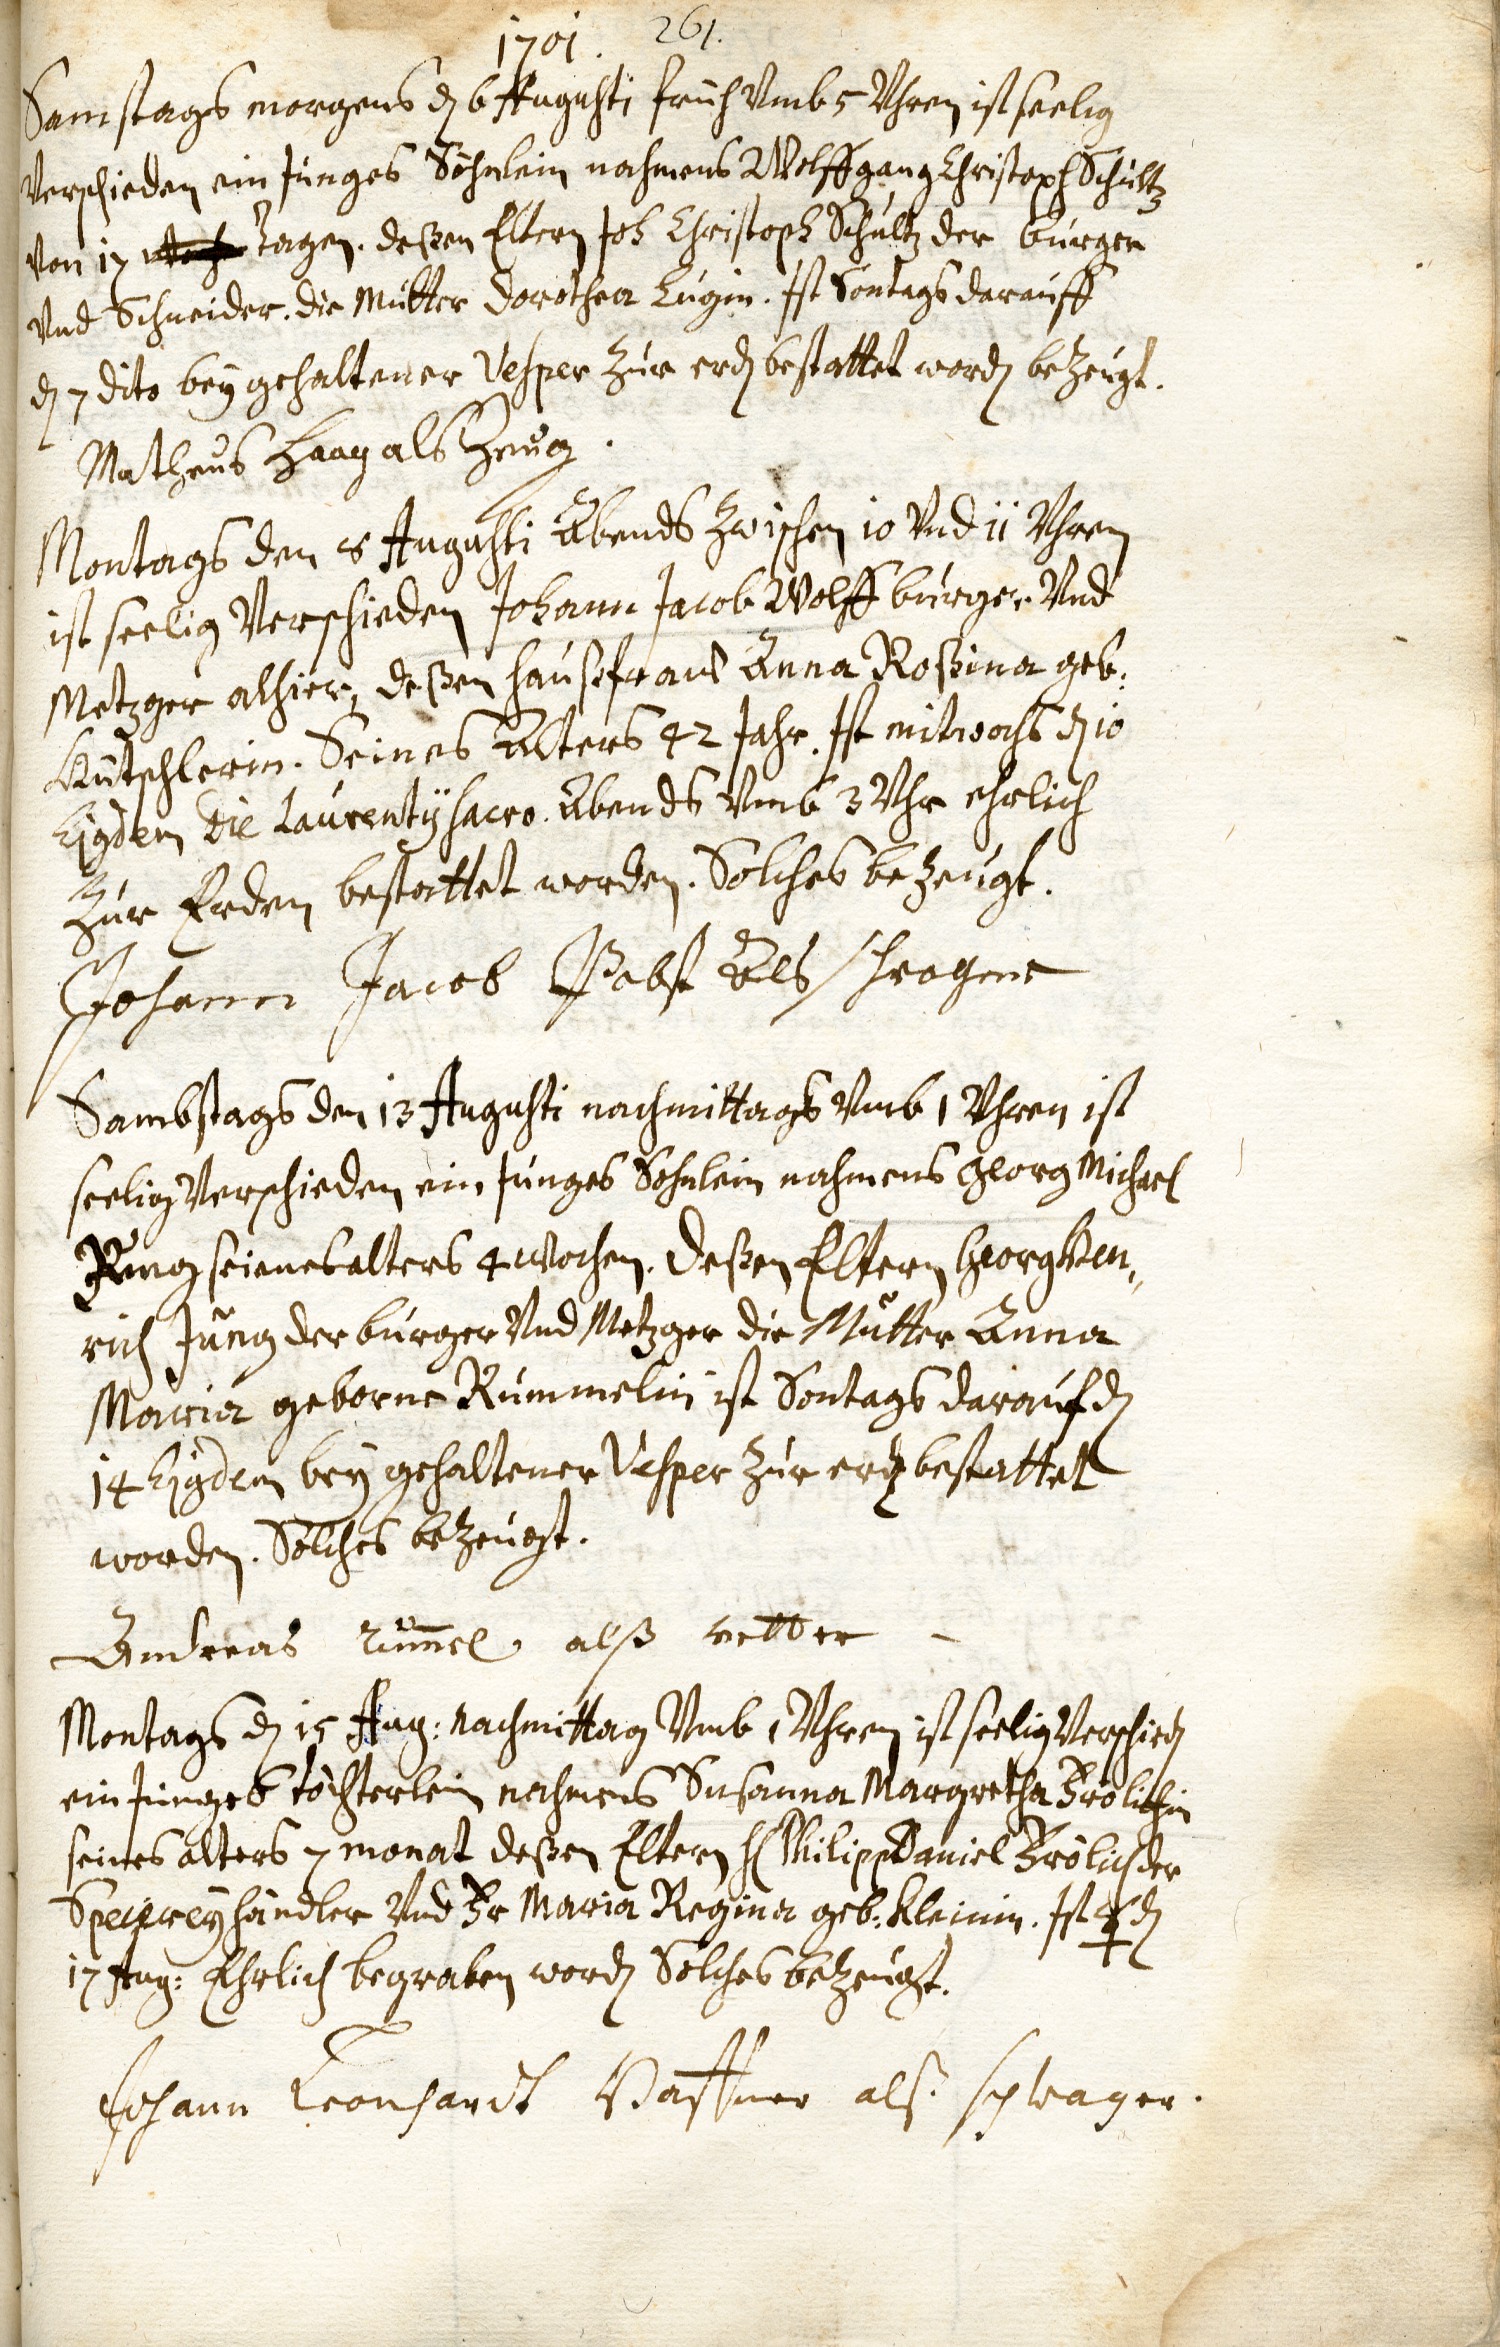 1701. 261.
Samstags morgens dẽ 6 Augusti früh Vmb 5 Vhren ist seelig
Verschieden ein Junges Söhnlein nahmens Wolffgang Christoph Schultz
von 17 Tagen. deßen Eltern Joh Christoph Schultz der burger
Vnd Schneider. die Mutter Dorothea Lugin. Ist Sontags darauff
dẽ 7 dito bey gehaltener Vesper Zur erdẽ bestattet wordẽ beZeugt.
Matheus Haag als Zeug.
Montags den 8 Augusti Abends Zwischen 10 Vnd 11 Vhren
ist seelig Verschieden Johann Jacob Wolff burger Vnd
Metzger alhier, deßen haußfrau Anna Roßina geb:
Kutschlerin. Seines Alters 42 Jahr. Ist mitwochs dẽ 10
Eigdem Die Laurentÿ sacro. Abends Vmb 3 Vhr ehrlich
Zur Erden bestattet worden. Solches beZeugt.
Johann Jacob Pabst Als
Sambstags den 13 Augusti nachmittags Vmb 1 Vhren ist
seelig Verschieden ein Junges Sohnlein nahmens Georg Michael
Jung seines alters 4 wochen. deßen Eltern Georg Hen,,
rich Jung der burger Vnd Metzger die Mutter Anna
Maria geborne Rummelin ist Sontags darauf dẽ
14 Eigdem bey gehaltener Vesper Zur erdẽ bestattet
worden. Solches beZeugt.
Andreas Rum̃el alß vetter
Montags dẽ 15 Aug: nachmittag Vmb 1 Vhren ist seelig Verschiedẽ
ein Junges töchterlein nahmens Susanna Margretha Frölichin
seines alters 7 monat deßen Eltern H Philipp Daniel Frölich der
Specereÿhändler Vnd Fr Maria Regina geb: Kleinin. Ist ☿ dẽ
17 Aug: Ehrlich begraben wordẽ Solches beZeugt.
Johann Leonhardt Haffner alß schwager.